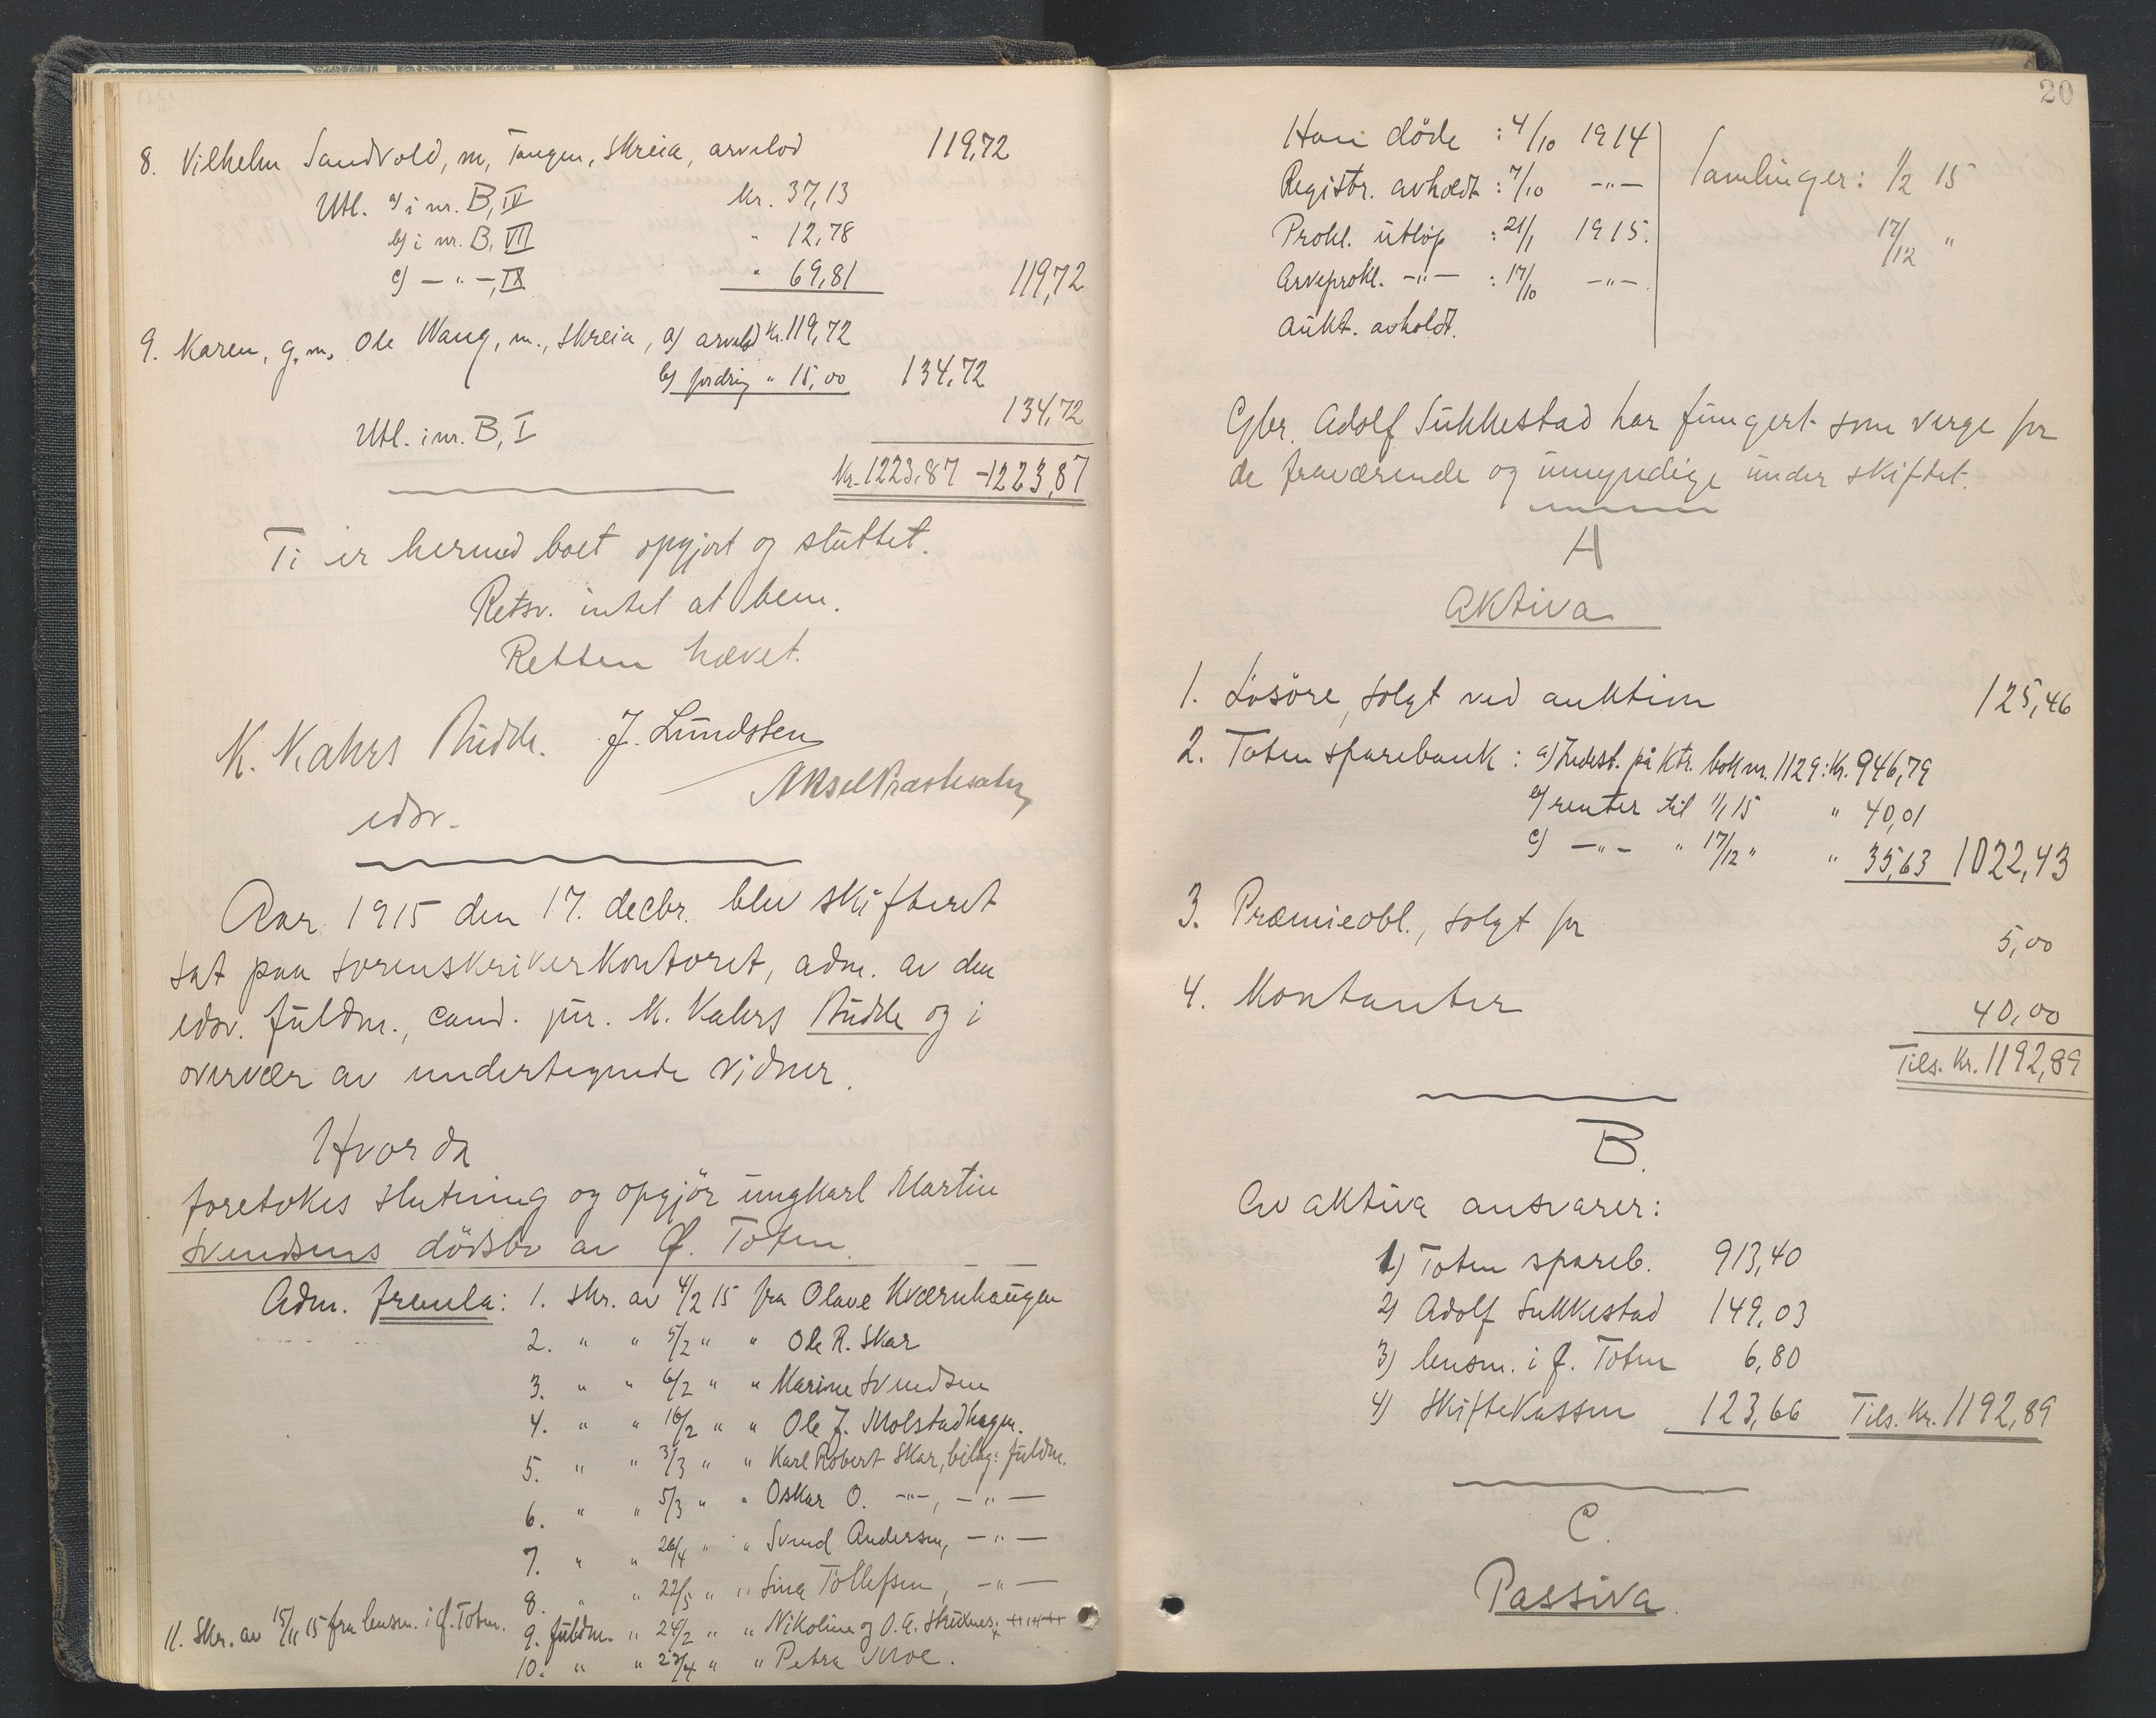 8. Vilhelm Sandvold, m, Tangen, Skreia, arvelod 119,72
Utl. a) i nr. B, IV kr. 37,13
b) i nr. B, VII " 12,78
c) — " —, IX " 69,81 119,72
9. Karen, g. m. Ole Wang, m., Skreia, a) arvelod kr. 119,72
b) fordring " 15,00 134,72
Utl. i nr. B, I 134,72
Kr. 1223,87 - 1223,87
Ti er hermed boet opgjort og sluttet.
Retsv. intet at bem.
Retten hævet.
K. Kahrs Budde. J. Lundsten
edsv.
Aar 1915 den 17. decbr. blev skifteret
sat paa sorenskriverkontoret, adm. av den
edsv. fuldm., cand. jur. K. Kahrs Budde og i
overvær av undertegnede vidner.
Hvorda
foretokes slutning og opgjör ungkarl Martin
Svendsens dödsbo av Ø. Toten.
Adm. fremla: 1. skr. av 4/2 15 fra Olave Kværnhaugen
2. " " 5/2 " " Ole R. Skar
3. " " 6/2 " " Marine Svendsen
4. " " 16/2 " " Ole J. Molstadhagen.
5. " " 3/3 " " Karl Robert Skar, bilag: fuldm.
6. " " 5/3 " " Oskar O. —"—, — " —
7. " " 26/4 " " Svend Andersen, — " —
8. " " 22/5 " " Lina Tollefsen, — " —
9. fuldm. " 24/2 " " Nikoline og O. A.
10. " " 23/4 " " Petra
11. Skr. av 15/11 15 fra lensm. i Ø. Toten.
20
Han döde : 4/10 1914
Registr. avholdt : 7/10 — " —
Prokl. utlöp : 21/1 1915.
Arveprokl. — " — : 17/10 — " —.
Aukt. avholdt.
Samlinger: 1/2 15
17/12 "
Gbr. Adolf Sukkestad har fungert som verge for
de fraværende og umyndige under skiftet.
A
Aktiva
1. Lösöre, solgt ved auktion 125,46
2. Toten sparebank : a) Indest. på ktr. bok nr. 1129: kr. 946,79
b) renter til 1/1 15 " 40,01
c) — " — " 17/12 " " 35,63 1022,43
3. Præmieobl., solgt for 5,00
4. Kontanter 40,00
Tils. kr. 1192,89
B.
Av aktiva ansvarer:
1) Toten spareb. 913,40
2) Adolf Sukkestad 149,03
3) lensm. i Ø. Toten 6,80
4) Skiftekassen 123,66 Tils. kr. 1192,89
C.
Passiva.